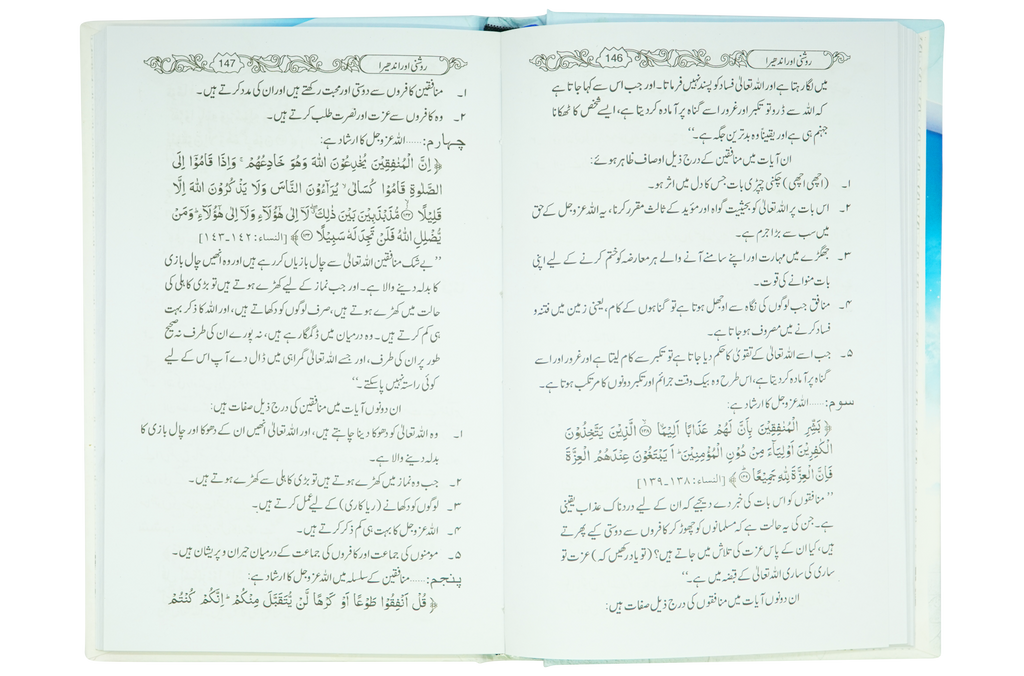 روشنی اور اندھیرا
146
میں لگا رہتا ہے اور اللہ تعالیٰ فساد کو پسند نہیں فرماتا۔ اور جب اس سے کہا جاتا ہے
کہ اللہ سے ڈرو تو تکبر اور غرور اسے گناہ پر آمادہ کر دیتا ہے، ایسے شخص کا ٹھکانا
جہنم ہی ہے اور یقیناً وہ بدترین جگہ ہے۔‘‘
ان آیات میں منافقین کے درج ذیل اوصاف ظاہر ہوئے:
۱۔ (اچھی اچھی) چکنی چپڑی بات جس کا دل میں اثر ہو۔
۲۔ اس بات پر اللہ تعالیٰ کو بحیثیت گواہ اور مؤید کے ثالث مقرر کرنا، یہ اللہ عزوجل کے حق
میں سب سے بڑا جرم ہے۔
۳۔ جھگڑے میں مہارت اور اپنے سامنے آنے والے ہر معارضہ کو ختم کرنے کے لیے اپنی
بات منوانے کی قوت۔
۴۔ منافق جب لوگوں کی نگاہ سے اوجھل ہوتا ہے تو گناہوں کے کام، یعنی زمین میں فتنہ و
فساد کرنے میں مصروف ہو جاتا ہے۔
۵۔ جب اسے اللہ تعالیٰ کے تقویٰ کا حکم دیا جاتا ہے تو تکبر سے کام لیتا ہے اور غرور اور اسے
گناہ پر آمادہ کر دیتا ہے، اس طرح وہ بیک وقت جرائم اور تکبر دونوں کا مرتکب ہوتا ہے۔
سوم:......اللہ عزوجل کا ارشاد ہے:
﴿ بَشِّرِ الْمُنٰفِقِيْنَ بِاَنَّ لَهُمْ عَذَابًا اَلِيْمًا ۝۱۳۸ الَّذِيْنَ يَتَّخِذُوْنَ
الْكٰفِرِيْنَ اَوْلِيَآءَ مِنْ دُوْنِ الْمُؤْمِنِيْنَ ؕ اَيَبْتَغُوْنَ عِنْدَهُمُ الْعِزَّةَ
فَاِنَّ الْعِزَّةَ لِلّٰهِ جَمِيْعًا ۝۱۳۹ ﴾ [النساء: ۱۳۸۔۱۳۹]
’’منافقوں کو اس بات کی خبر دے دیجیے کہ ان کے لیے دردناک عذاب یقینی
ہے۔ جن کی یہ حالت ہے کہ مسلمانوں کو چھوڑ کر کافروں سے دوستی کیے پھرتے
ہیں، کیا ان کے پاس عزت کی تلاش میں جاتے ہیں؟ (تو یاد رکھیں کہ) عزت تو
ساری کی ساری اللہ تعالیٰ کے قبضہ میں ہے۔‘‘
ان دونوں آیات میں منافقوں کی درج ذیل صفات ہیں:
روشنی اور اندھیرا
147
۱۔ منافقین کافروں سے دوستی اور محبت رکھتے ہیں اور ان کی مدد کرتے ہیں۔
۲۔ وہ کافروں سے عزت اور نصرت طلب کرتے ہیں۔
چہارم:......اللہ عزوجل کا ارشاد ہے:
﴿ اِنَّ الْمُنٰفِقِيْنَ يُخٰدِعُوْنَ اللّٰهَ وَهُوَ خَادِعُهُمْ ۚ وَاِذَا قَامُوْٓا اِلَى
الصَّلٰوةِ قَامُوْا كُسَالٰى ۙ يُرَآءُوْنَ النَّاسَ وَلَا يَذْكُرُوْنَ اللّٰهَ اِلَّا
قَلِيْلًا ۝۱۴۲ مُّذَبْذَبِيْنَ بَيْنَ ذٰلِكَ ۖ لَآ اِلٰى هٰٓؤُلَآءِ وَلَآ اِلٰى هٰٓؤُلَآءِ ؕ وَمَنْ
يُّضْلِلِ اللّٰهُ فَلَنْ تَجِدَ لَهٗ سَبِيْلًا ۝۱۴۳ ﴾ [النساء: ۱۴۲۔۱۴۳]
’’بے شک منافقین اللہ تعالیٰ سے چال بازیاں کر رہے ہیں اور وہ انھیں چال بازی
کا بدلہ دینے والا ہے۔ اور جب نماز کے لیے کھڑے ہوتے ہیں تو بڑی کاہلی کی
حالت میں کھڑے ہوتے ہیں، صرف لوگوں کو دکھاتے ہیں، اور اللہ کا ذکر بہت
ہی کم کرتے ہیں۔ وہ درمیان میں ڈگمگا رہے ہیں، نہ پورے ان کی طرف نہ صحیح
طور پر ان کی طرف، اور جسے اللہ تعالیٰ گمراہی میں ڈال دے آپ اس کے لیے
کوئی راستہ نہیں پا سکتے۔‘‘
ان دونوں آیات میں منافقین کی درج ذیل صفات ہیں:
۱۔ وہ اللہ تعالیٰ کو دھوکا دینا چاہتے ہیں، اور اللہ تعالیٰ انھیں ان کے دھوکا اور چال بازی کا
بدلہ دینے والا ہے۔
۲۔ جب وہ نماز میں کھڑے ہوتے ہیں تو بڑی کاہلی سے کھڑے ہوتے ہیں۔
۳۔ لوگوں کو دکھانے (ریا کاری) کے لیے عمل کرتے ہیں۔
۴۔ اللہ عزوجل کا بہت ہی کم ذکر کرتے ہیں۔
۵۔ مومنوں کی جماعت اور کافروں کی جماعت کے درمیان حیران و پریشان ہیں۔
پنجم:......منافقین کے سلسلہ میں اللہ عزوجل کا ارشاد ہے:
﴿ قُلْ اَنْفِقُوْا طَوْعًا اَوْ كَرْهًا لَّنْ يُّتَقَبَّلَ مِنْكُمْ ؕ اِنَّكُمْ كُنْتُمْ